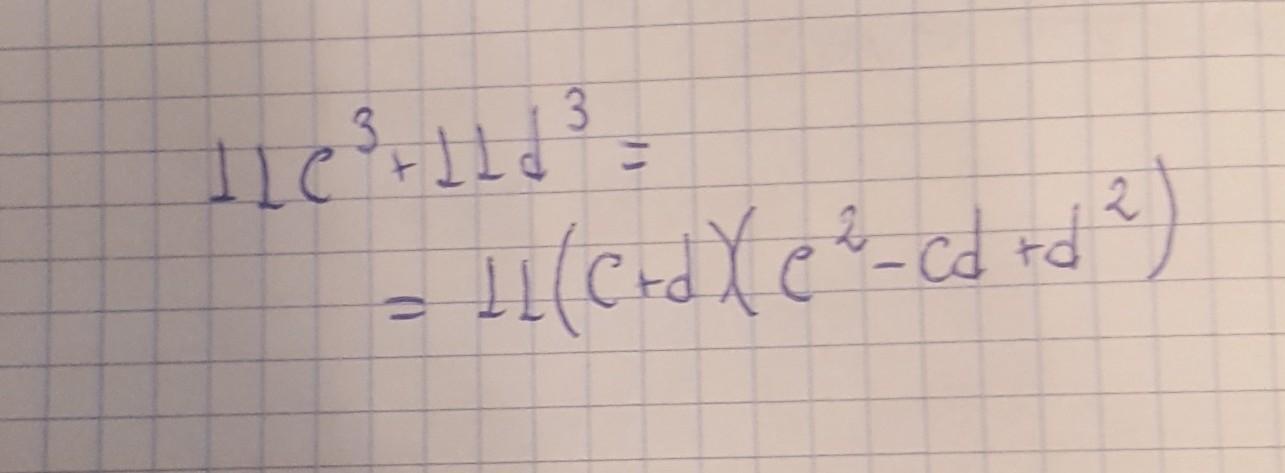 11c³+11d³=
=11(c+d)(c²-cd+d²)